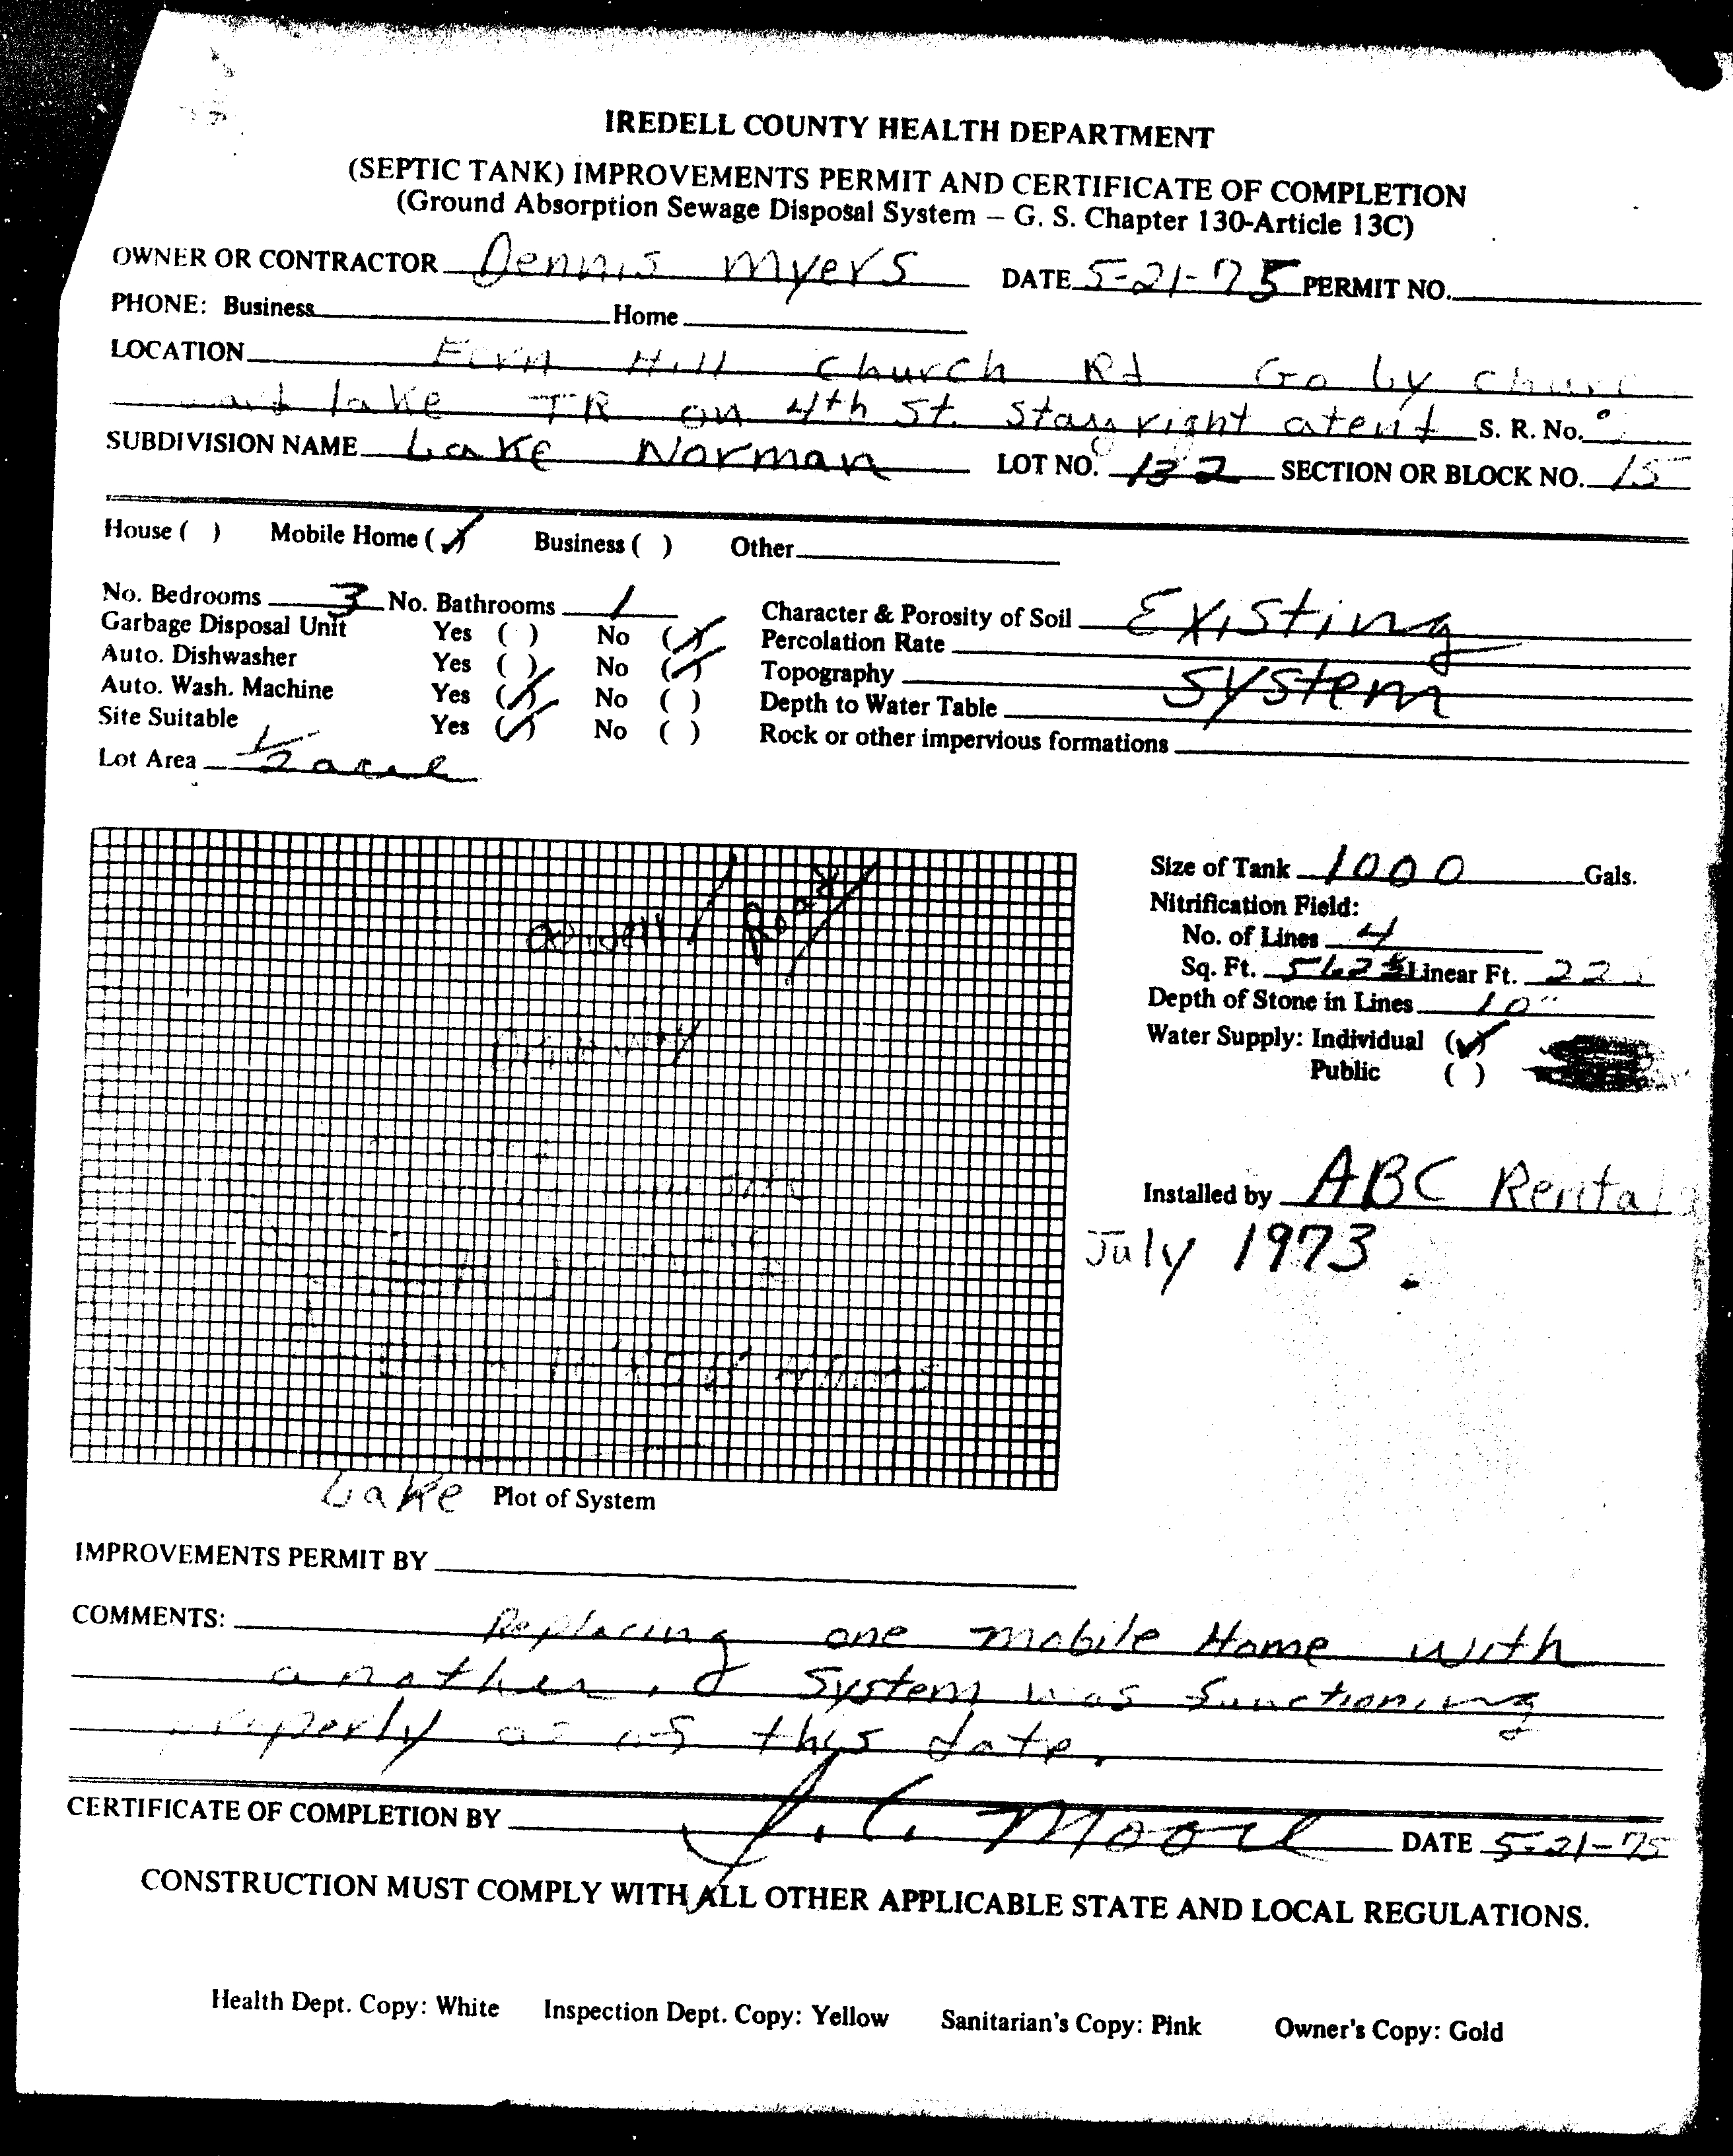 IREDELL COUNTY HEALTH DEPARTMENT
(SEPTIC TANK) IMPROVEMENTS PERMIT AND CERTIFICATE OF COMPLETION
(Ground Absorption Sewage Disposal System – G. S. Chapter 130-Article 13C)
OWNER OR CONTRACTOR Dennis Myers DATE 5-21-75 PERMIT NO.
PHONE: Business Home
LOCATION Fern Hill Church Rd Go by
lake TR on 4th St. Stay right at S. R. No.
SUBDIVISION NAME Lake Norman LOT NO. 132 SECTION OR BLOCK NO. 15
House ( ) Mobile Home (✓) Business ( ) Other
No. Bedrooms 3 No. Bathrooms 1
Garbage Disposal Unit Yes ( ) No (✓)
Auto. Dishwasher Yes ( ) No (✓)
Auto. Wash. Machine Yes (✓) No ( )
Site Suitable Yes (✓) No ( )
Lot Area 1/2 acre
Character & Porosity of Soil Existing
Percolation Rate
Topography System
Depth to Water Table
Rock or other impervious formations
Road
Size of Tank 1000 Gals.
Nitrification Field:
No. of Lines 4
Sq. Ft. Linear Ft.
Depth of Stone in Lines 10"
Water Supply: Individual (✓)
Public ( )
Installed by ABC Rentals
July 1973.
Lake Plot of System
IMPROVEMENTS PERMIT BY
COMMENTS: Replacing one mobile Home with
another, & System was functioning
properly as of this date.
CERTIFICATE OF COMPLETION BY J. C. Moore DATE 5-21-75
CONSTRUCTION MUST COMPLY WITH ALL OTHER APPLICABLE STATE AND LOCAL REGULATIONS.
Health Dept. Copy: White Inspection Dept. Copy: Yellow Sanitarian's Copy: Pink Owner's Copy: Gold